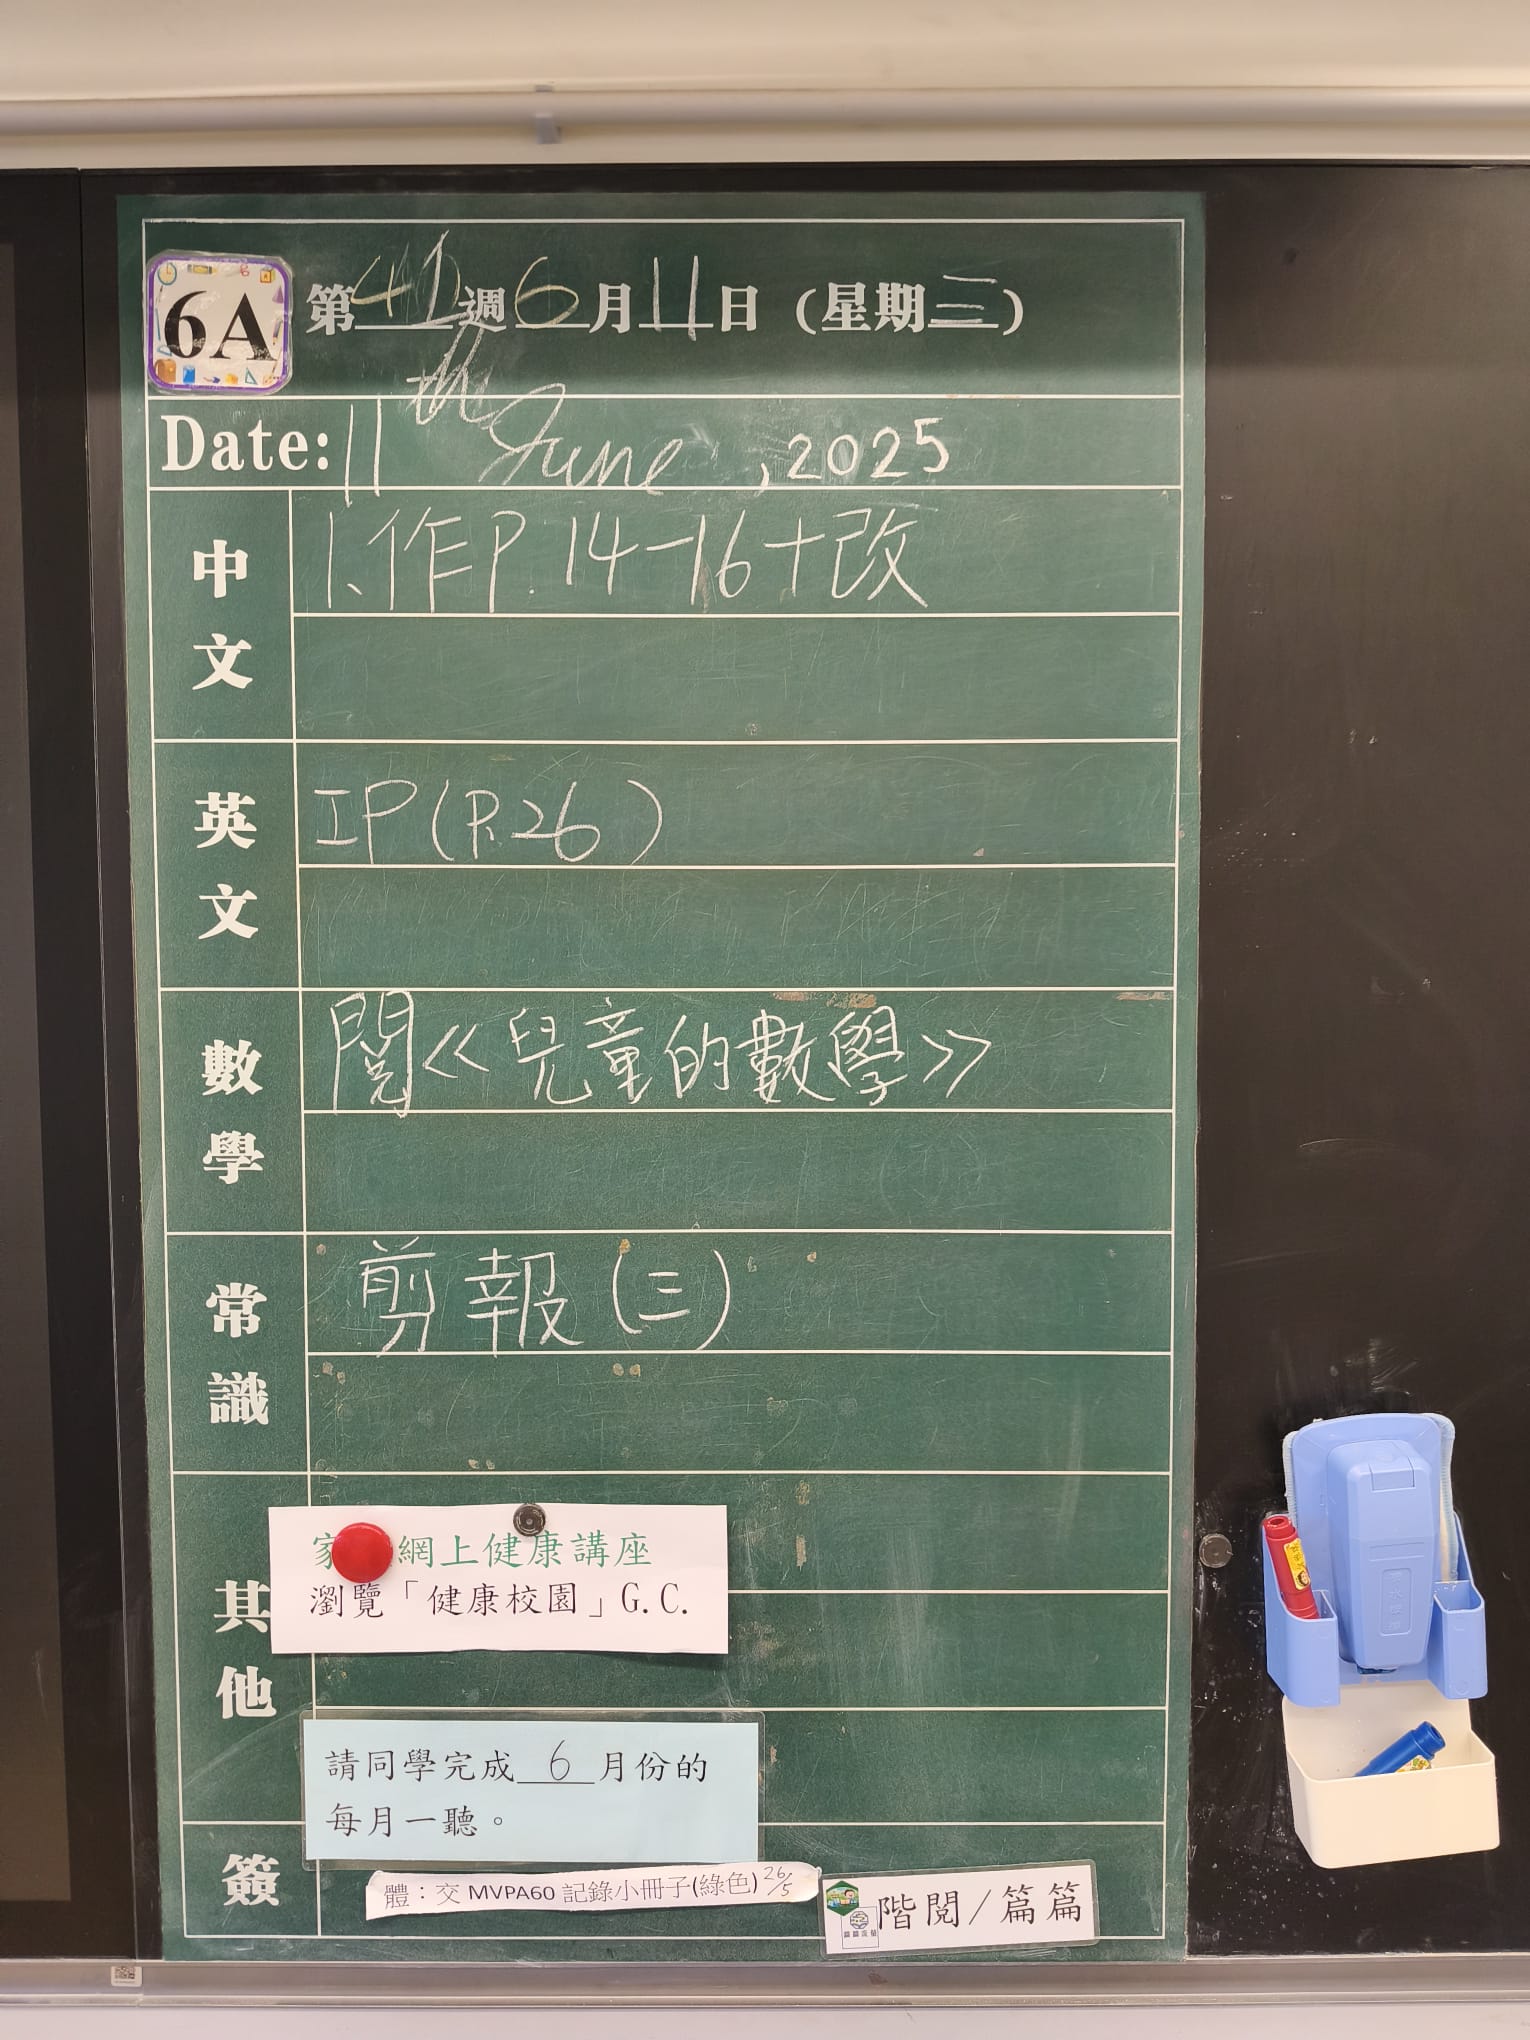 6A
第41週6月11日(星期三)
Date: 11th June, 2025
中文
1.作P.14-16+改
英文
IP(P.26)
數學
閱<<兒童的數學>>
常識
剪報(三)
其他
家 網上健康講座
瀏覽「健康校園」G.C.
請同學完成6月份的
每月一聽。
簽
體：交 MVPA60 記錄小冊子(綠色) 26/5
階閱/篇篇